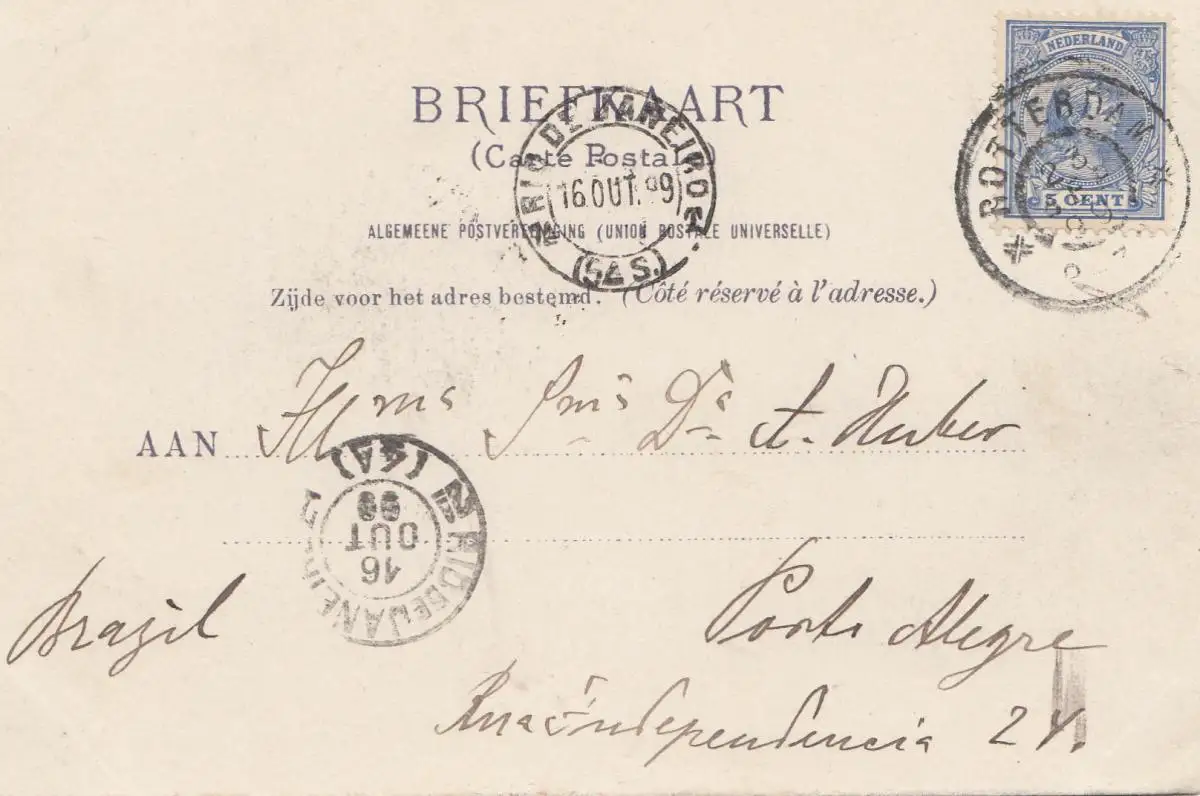 NEDERLAND
5 CENT
ROTTERDAM
BRIEFKAART
(Carte Postale)
RIO DE JANEIRO
16 OUT. 99
ALGEMEENE POSTVEREENIGING (UNION POSTALE UNIVERSELLE)
Zijde voor het adres bestemd. (Côté réservé à l'adresse.)
AAN Illma Sma Da A. Huber
RIO DE JANEIRO
16
OUT
99
Brazil
Porto Alegre
Rua Independencia 24.